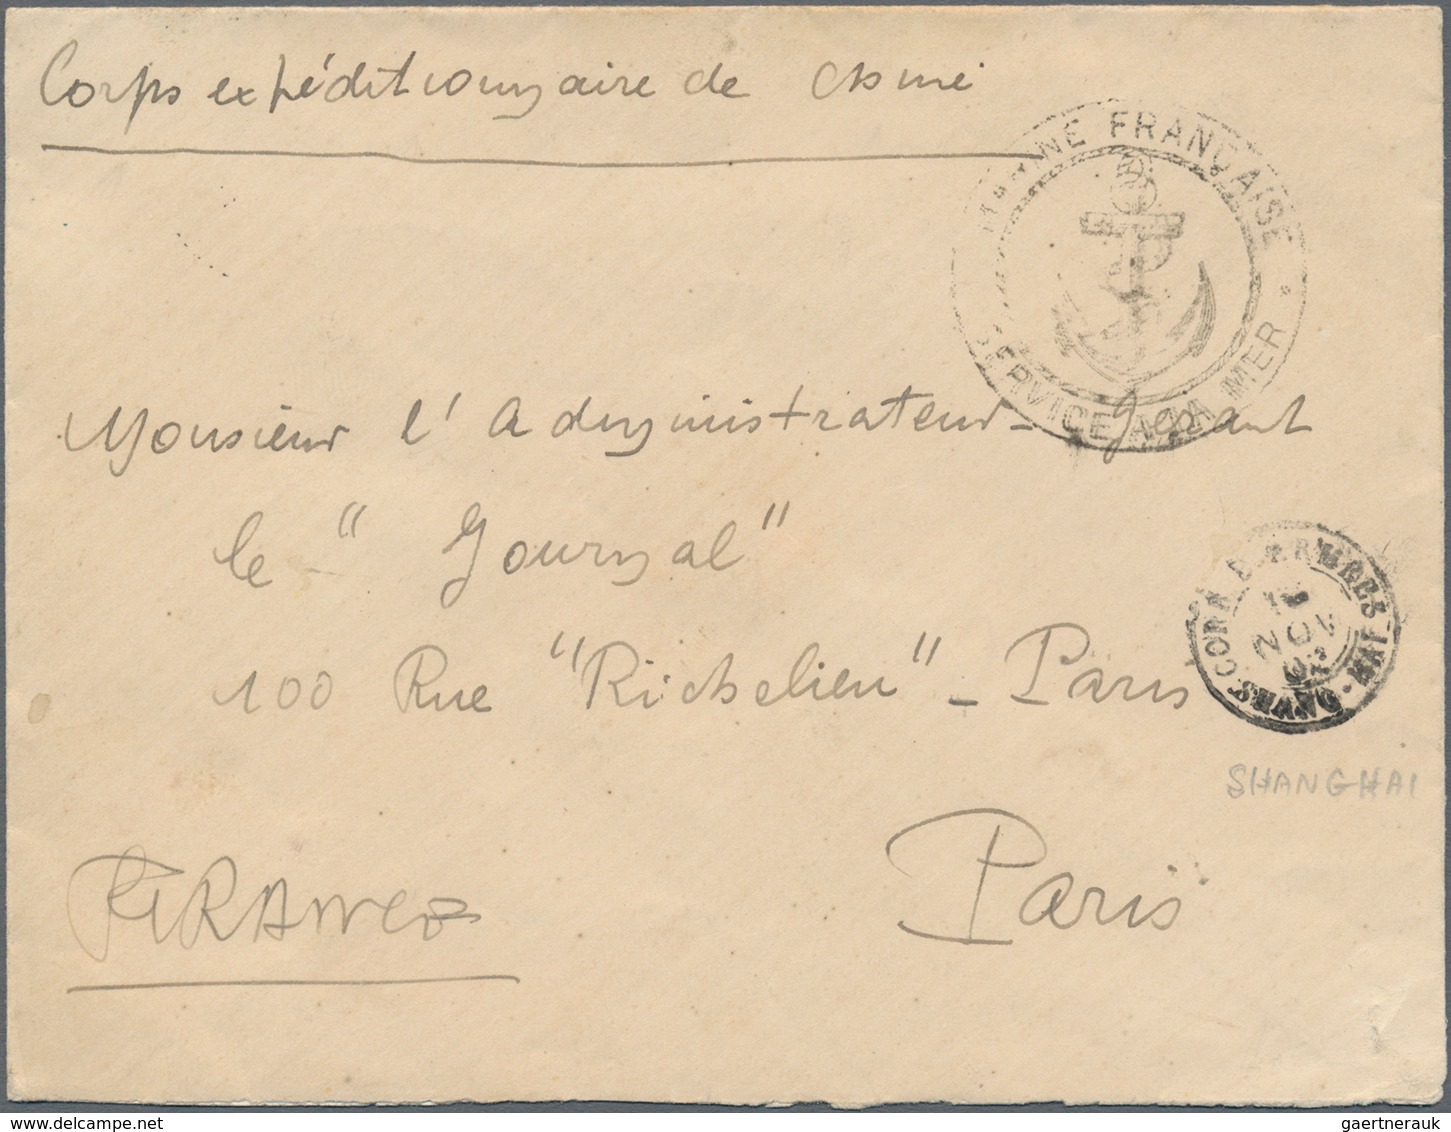 Corps expéditionnaire de Chine
MARINE FRANÇAISE
SERVICE A LA MER
Monsieur l'Administrateur-Gérant
le "Journal"
100 Rue "Richelieu" - Paris
CORR. D'ARMÉES
NOV
SHANGHAI
Paris
FRANCE
gaertnerauk